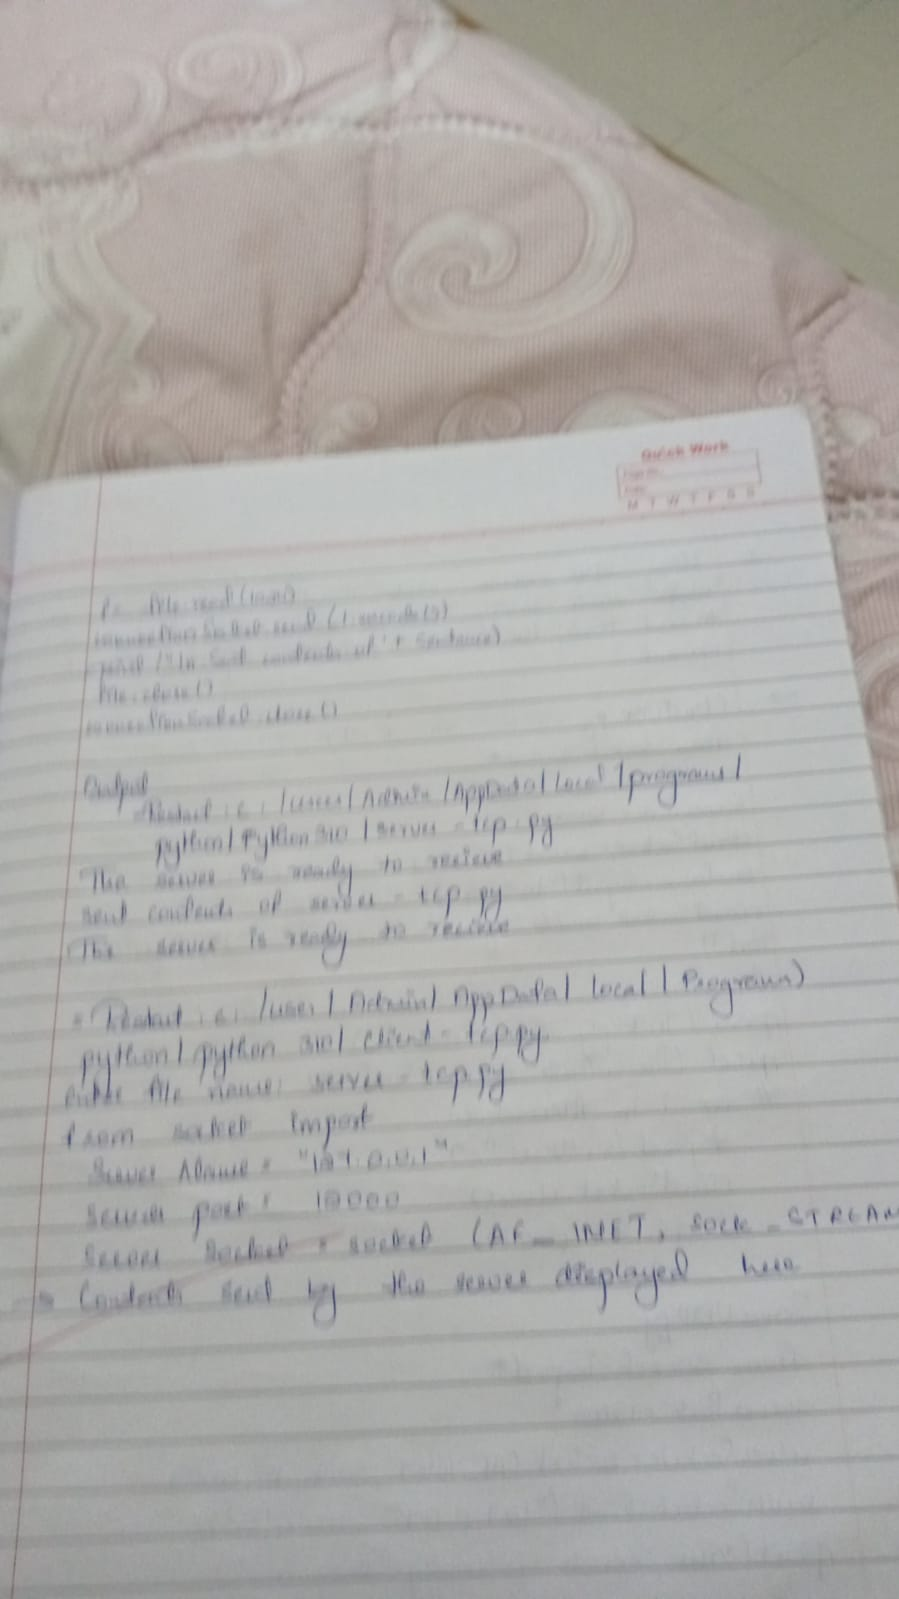 Quick Work
M T W T F S S
l = file.read(1024)
connectionSocket.send (l.encode())
print ("\n Sent contents of" + Sentence)
file.close()
connectionSocket.close()
Output
= Restart : c : /users/ Admin /AppData/ Local /programs/
python/ Python 310 / server - tcp.py
The server is ready to recieve
sent contents of server - tcp.py
The server is ready to recieve
= Restart : c: /user / Admin/ AppData/ local / Programs)
python/ python 310/ client - tcp.py
enter file name: server - tcp.py
from socket import
Server Name = "127.0.0.1"
server port =
server socket = socket (AF_INET, SOCK_STREAM
Contents sent by the server displayed here